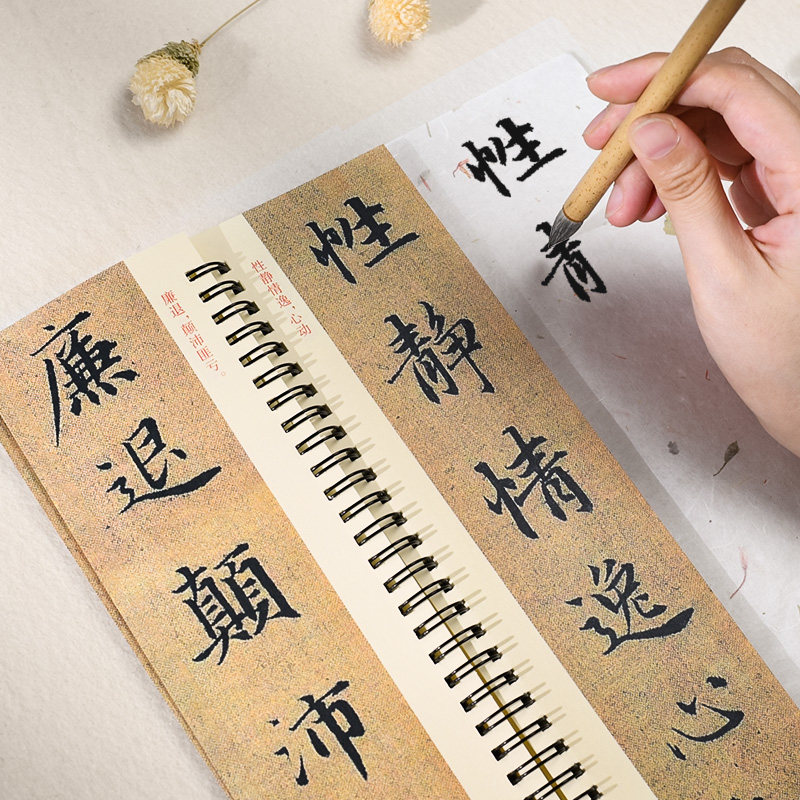 性靜情逸心
性静情逸，心动
廉退，颠沛匪亏。
廉退顛沛
性
青